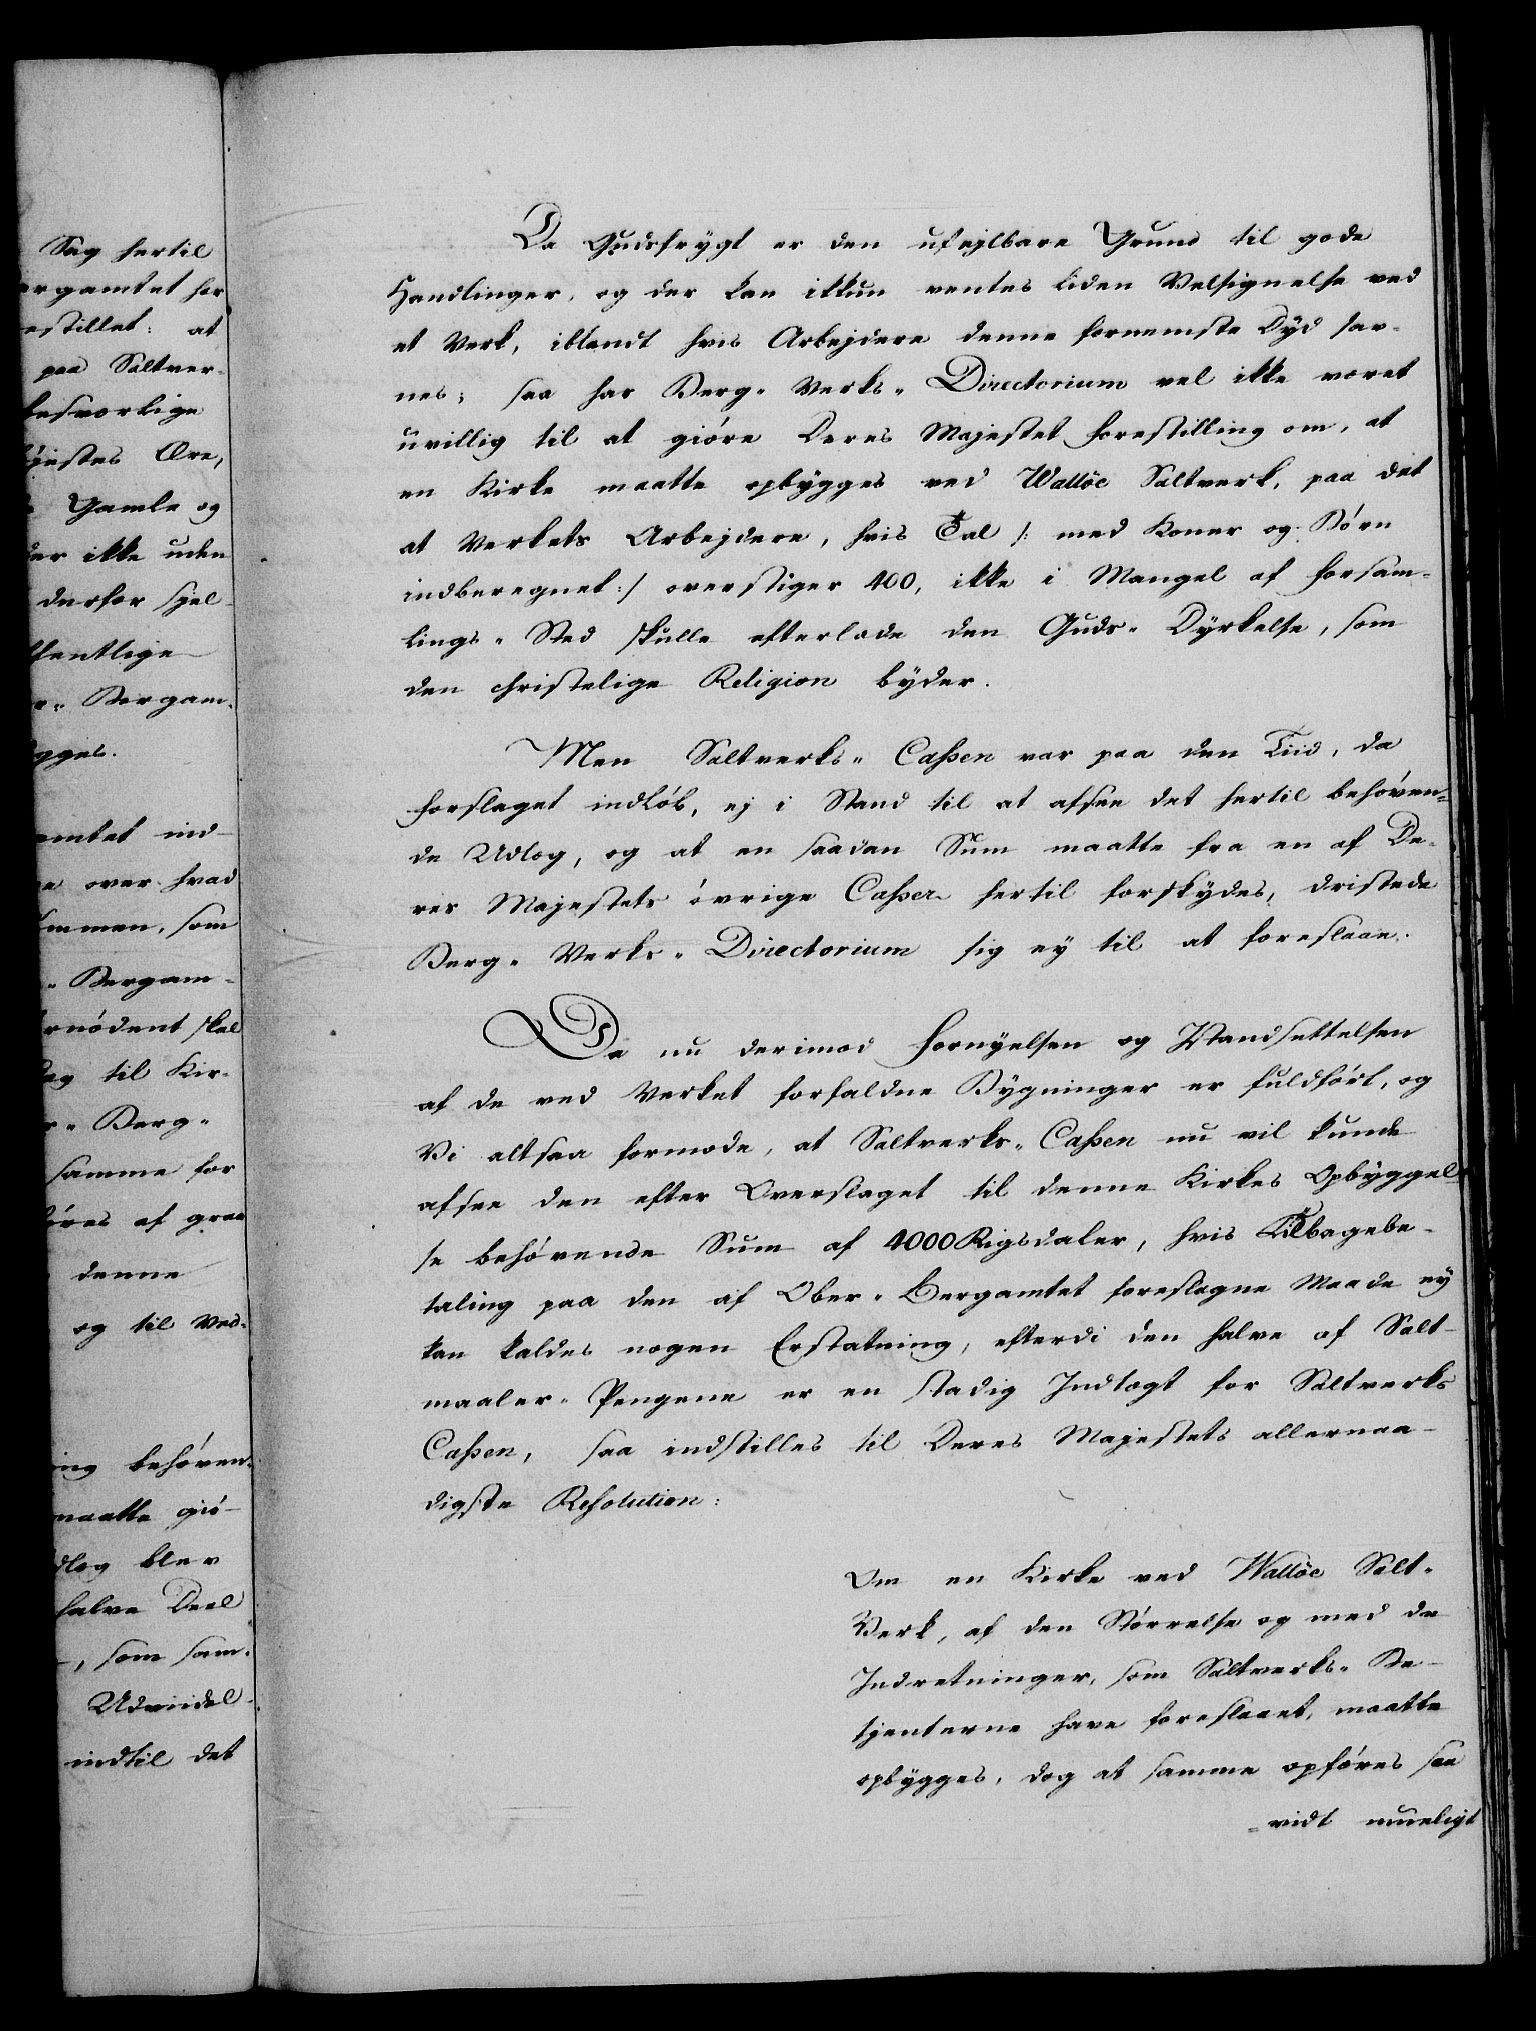 Sag hertil
ergamtet har
estillet: at
paa Saltver-
besværlige
øjestes Ære,
Gamle og
der ikke uden
derfor sjel-
fentlige
r„ Bergam-
ygges.
amtet ind-
e over hvad
ommen, som
„ Bergam-
rnødent skal
lag til Kir-
r„ Berg-
samme for
føres af graa
denne
og til Ved-
ing behøven-
maatte giø-
dlæg blev
halve Deel
, som sam-
Udviidel-
indtil det
Da Gudsfrygt er den ufejlbare Grund til gode
Handlinger, og der kan ikkun ventes liden Velsignelse ved
et Verk, iblandt hvis Arbejdere denne fornemste Dyd sav-
nes; saa har Berg„ Verks„ Directorium vel ikke været
uvillig til at giøre Deres Majestet Forestilling om, at
en Kirke maatte opbygges ved Walløe Saltverk, paa det
at Verkets Arbejdere, hvis Tal /: med Koner og Børn
indberegnet :/ overstiger 400, ikke i Mangel af Forsam-
lings„ Sted skulle efterlade den Guds„ Dyrkelse, som
den christelige Religion byder.
Men Saltverks„ Cassen var paa den Tiid, da
Forslaget indløb, ej i Stand til at afsee det hertil behøven-
de Udlæg, og at en saadan Sum maatte fra en af De-
res Majestets øvrige Casser hertil forskydes, dristede
Berg„ Verks„ Directorium sig ey til at foreslaae.
Da nu derimod Fornyelsen og Istandsettelsen
af de ved Verket forfaldne Bygninger er fuldført, og
Vi altsaa formode, at Saltverks„ Cassen nu vil kunde
afsee den efter Overslaget til denne Kirkes Opbyggel-
se behøvende Sum af 4000 Rigsdaler, hvis Tilbagebe-
taling paa den af Ober„ Bergamtet foreslagne Maade ey
kan kaldes nogen Erstatning, efterdi den halve af Salt-
maaler„ Pengene er en stadig Indtægt for Saltverks
Cassen, saa indstilles til Deres Majestets allernaa-
digste Resolution:
Om en Kirke ved Walløe Salt-
Verk, af den Størrelse og med de
Indretninger, som Saltverks„ Be-
tjenterne have foreslaaet, maatte
opbygges, dog at samme opføres saa
vidt mueligt